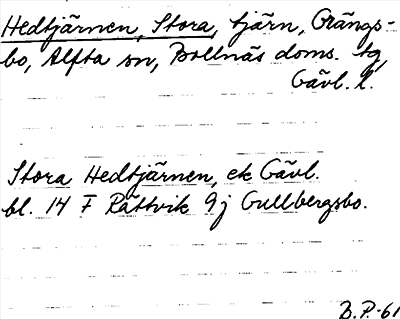 Hedtjärnen, Stora, tjärn, Grängs-
bo, Alfta sn, Bollnäs doms. tg,
Gävl. l.
Stora Hedtjärnen, ek Gävl.
bl. 14 F Rättvik 9j Gullbergsbo.
B.P.-61